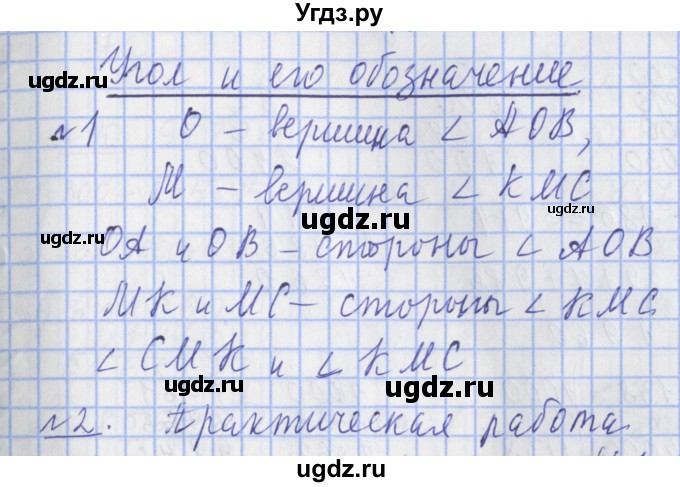 Угдз.ру
Угол и его обозначение
№1 О – вершина < АОВ,
М – вершина < КМС
ОА и ОВ – стороны < АОВ
МК и МС – стороны < КМС
< СМК и < КМС
№2. Практическая работа.
ugdz.ru
ugdz.ru
ugdz.ru
ugdz.ru
ugdz.ru
ugdz.ru
ugdz.ru
ugdz.ru
ugdz.ru
ugdz.ru